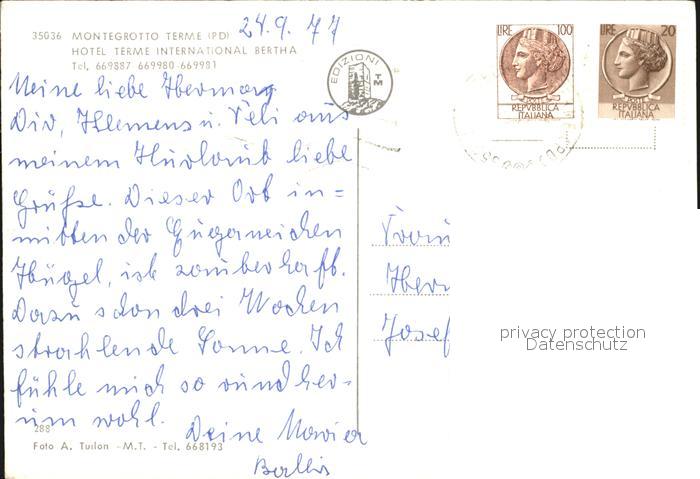 24.9.77
35036 MONTEGROTTO TERME (PD)
HOTEL TERME INTERNATIONAL BERTHA
Tel. 669887 669980-669981
EDIZIONI
TM
LIRE 100
POSTE
REPVBBLICA
ITALIANA
LIRE 20
POSTE
REPVBBLICA
ITALIANA
Meine liebe
Dir, Klemens u. aus
meinem Kurlaub liebe
Grüße. Dieser Ort in=
mitten der Euganeischen
Hügel, ist zauberhaft.
Dazu schon drei Wochen
strahlende Sonne. Ich
fühle mich so rundher-
um wohl.
Deine Maria
Frau
Josef
privacy protection
Datenschutz
288
Foto A. Tuilon -M.T. - Tel. 668193